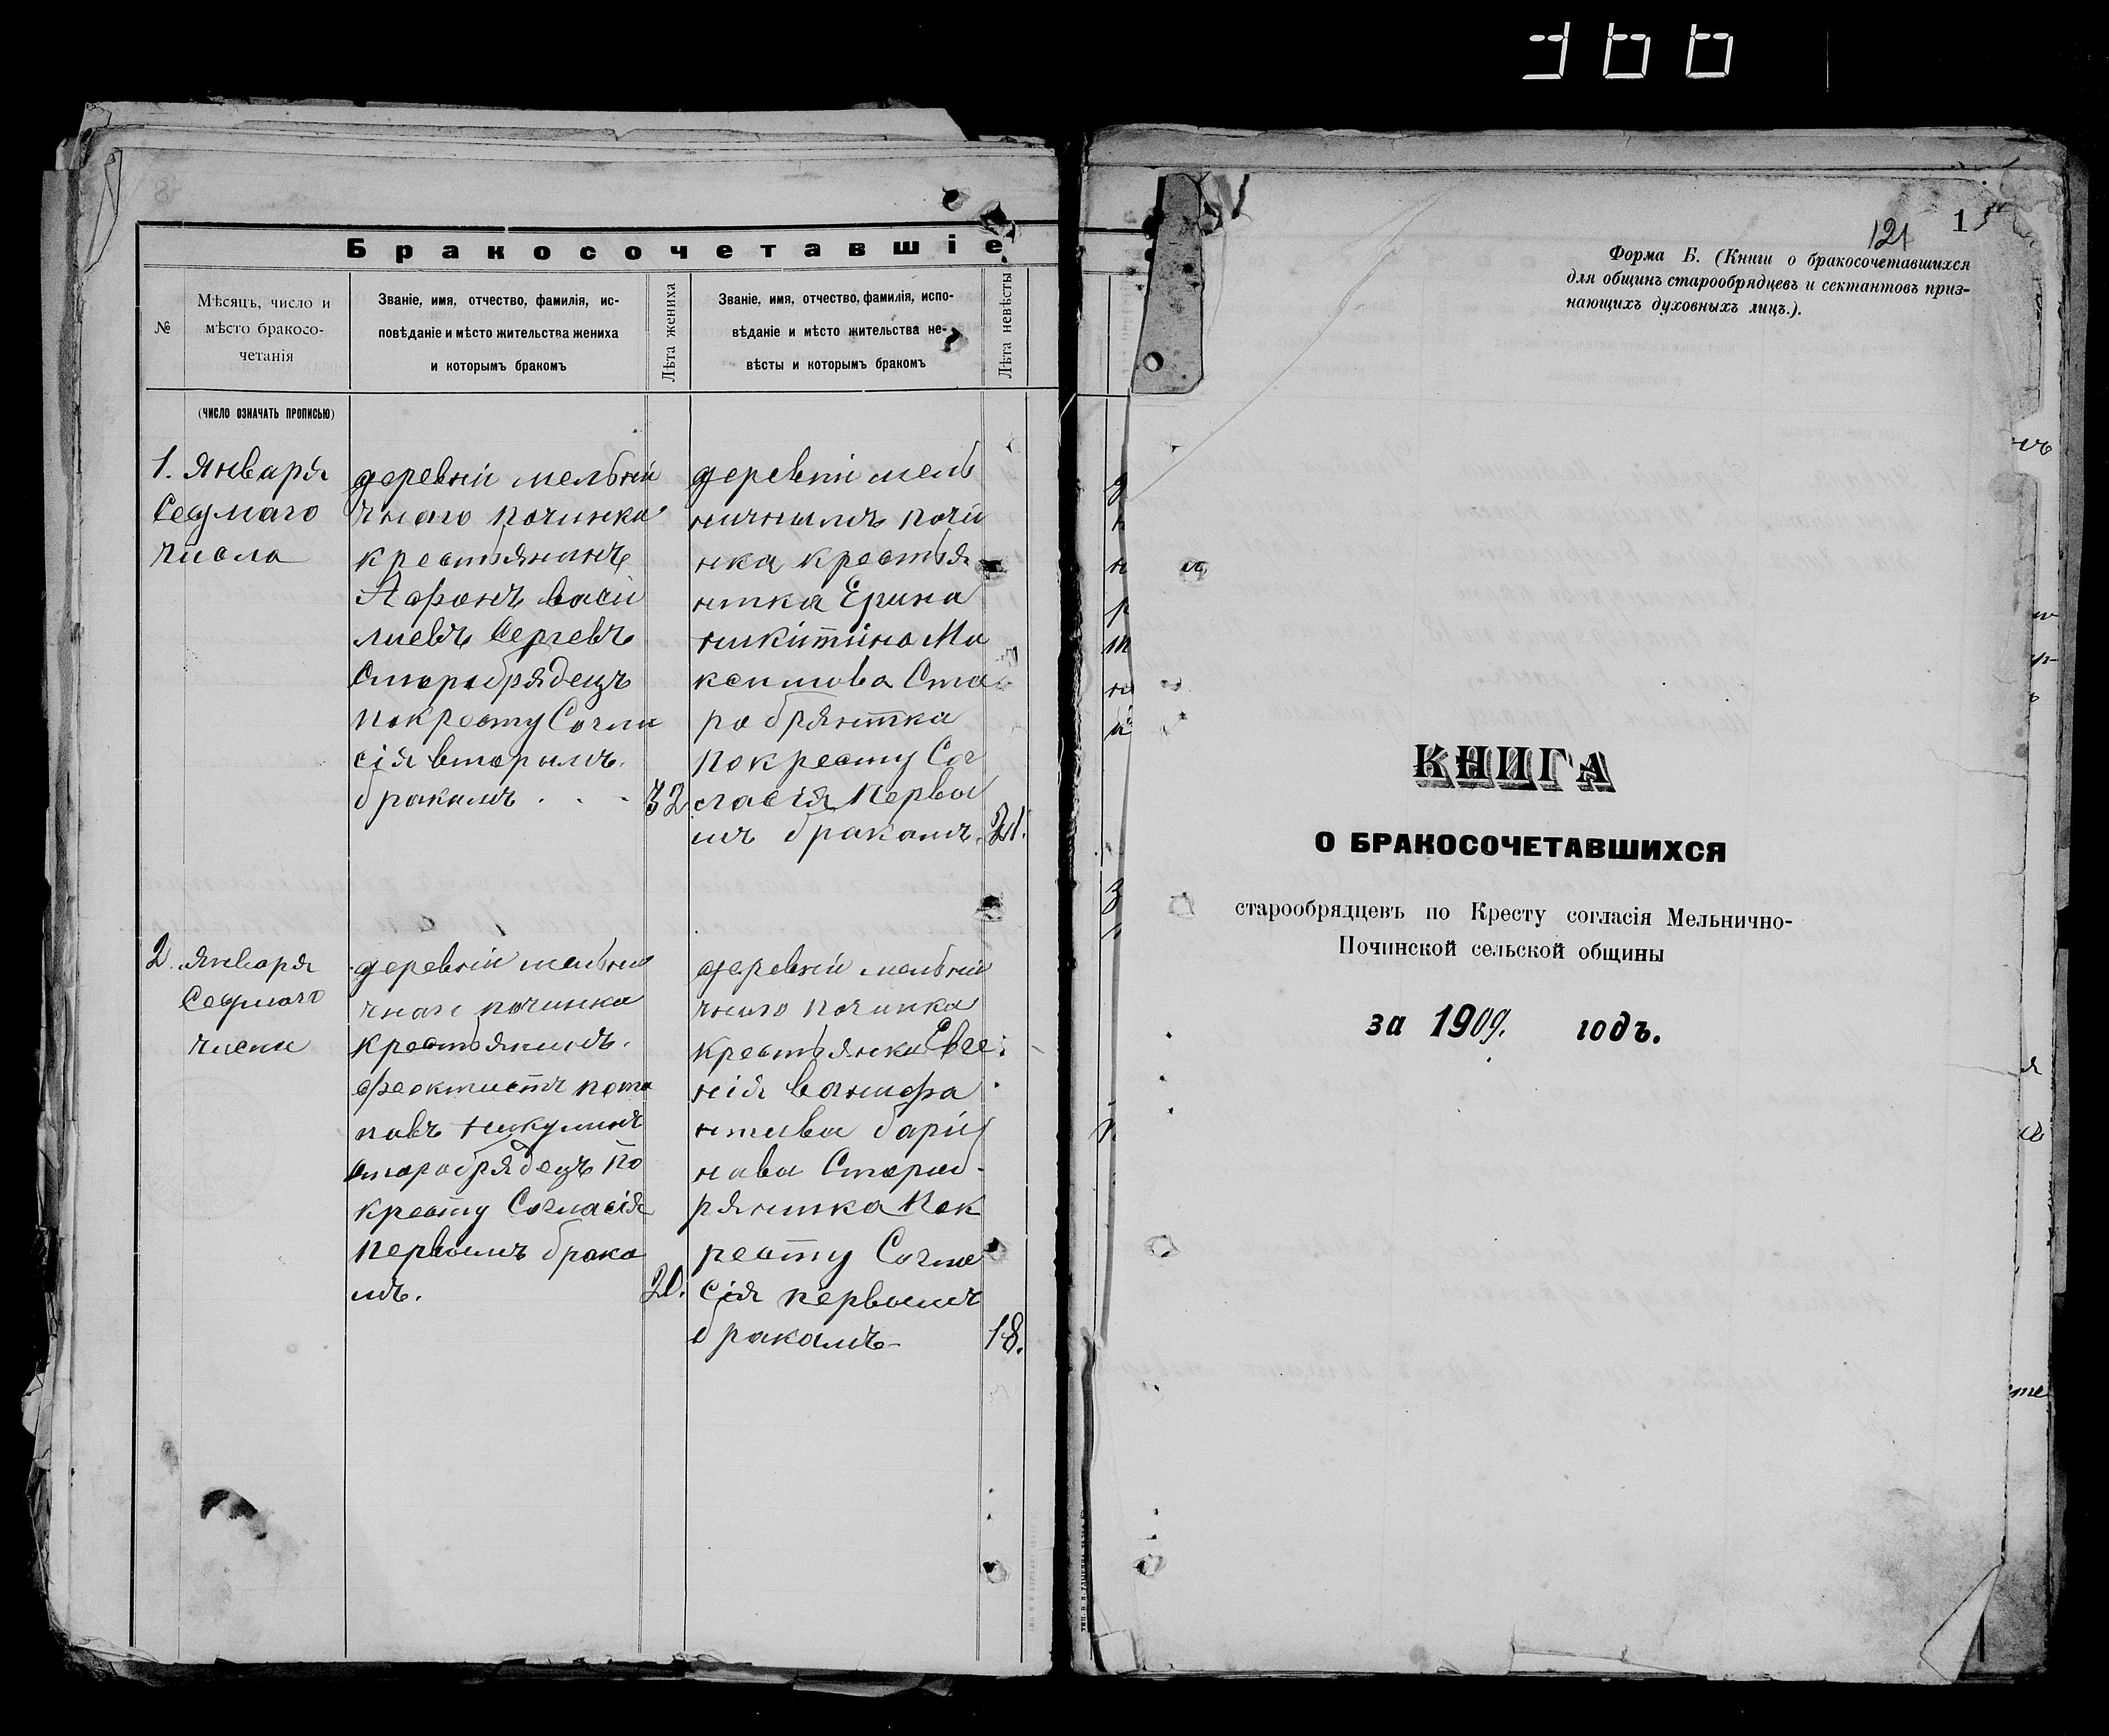 Бракосочетавшіе
№
Мѣсяцъ, число и
мѣсто бракосо-
четанія
Званіе, имя, отчество, фамилія, ис-
повѣданіе и мѣсто жительства жениха
и которымъ бракомъ
Лѣта жениха
Званіе, имя, отчество, фамилія, испо-
вѣданіе и мѣсто жительства не-
вѣсты и которымъ бракомъ
Лѣта невѣсты
(число означать прописью)
1. Января
Седмаго
числа
деревніи мельни
чнаго починка
крестьянинъ
Афонъ васи
лиевъ Сергевъ
Старобрядецъ
покресту Согла
сія вторымъ
бракамъ . . . 32
деревни мель
ничнымъ почи
нка крестья
нтка Ерина
никитина Ма
ксимова Ста
робрянтка
покресту Сог
ласія Первы
мъ бракамъ. 21.
2. Января
Седмаго
числа
деревніи мельни
чнаго починка
крестьянинъ.
феоктистъ пота
повъ никулинъ
старобрядецъ по
кресту Согласія
первымъ брака
мъ. 20.
деревніи мельни
чнаго починка
крестьянка Евге
нія
нтива бари
нава Стараб-
рянтка Пок
ресту Согла
сія первымъ
бракамъ 18.
121
1
Форма Б. (Книги о бракосочетавшихся
для общинъ старообрядцевъ и сектантовъ приз-
нающихъ духовныхъ лицъ.).
КНИГА
О БРАКОСОЧЕТАВШИХСЯ
старообрядцевъ по Кресту согласія Мельнично-
Починской сельской общины
за 1909. годъ.